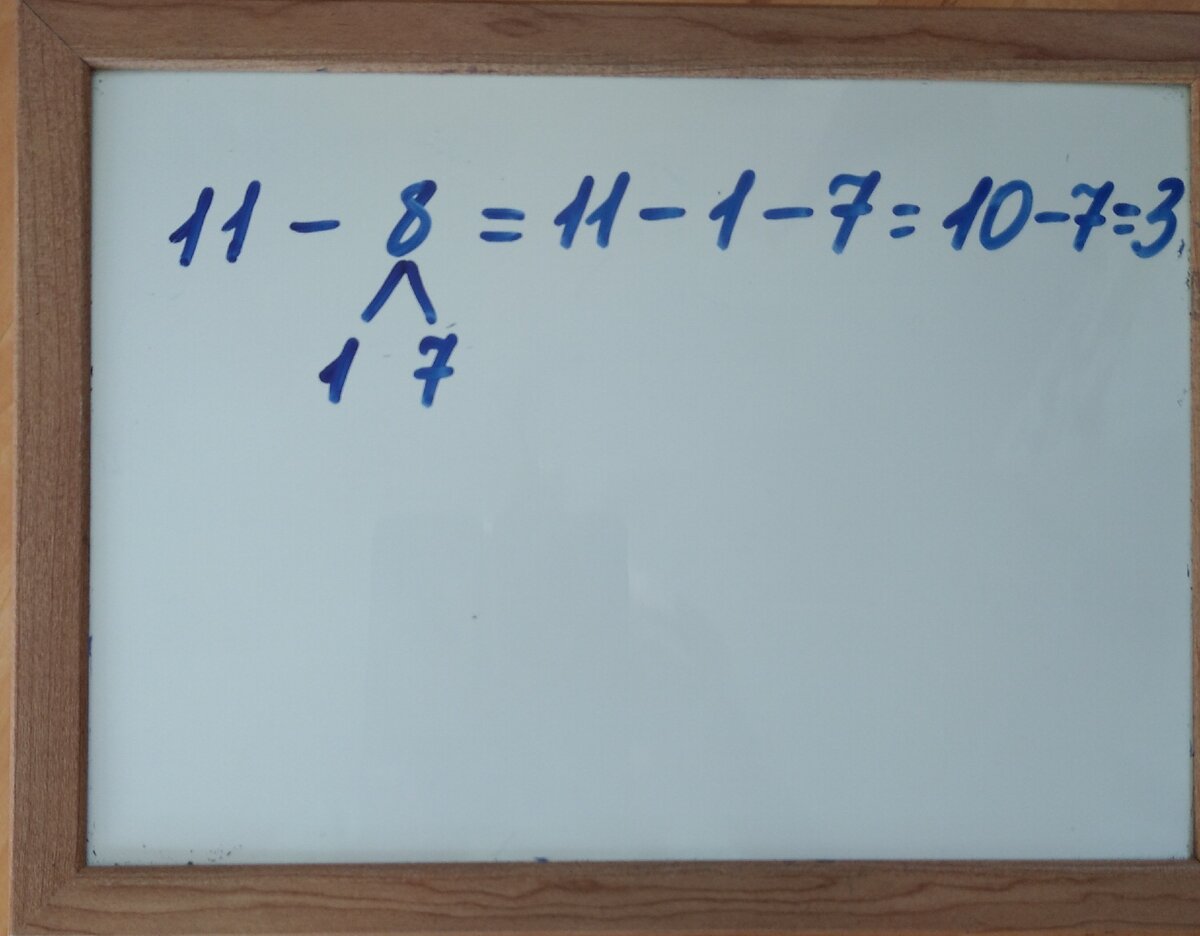 11 - 8 = 11 - 1 - 7 = 10 - 7 = 3
1 7